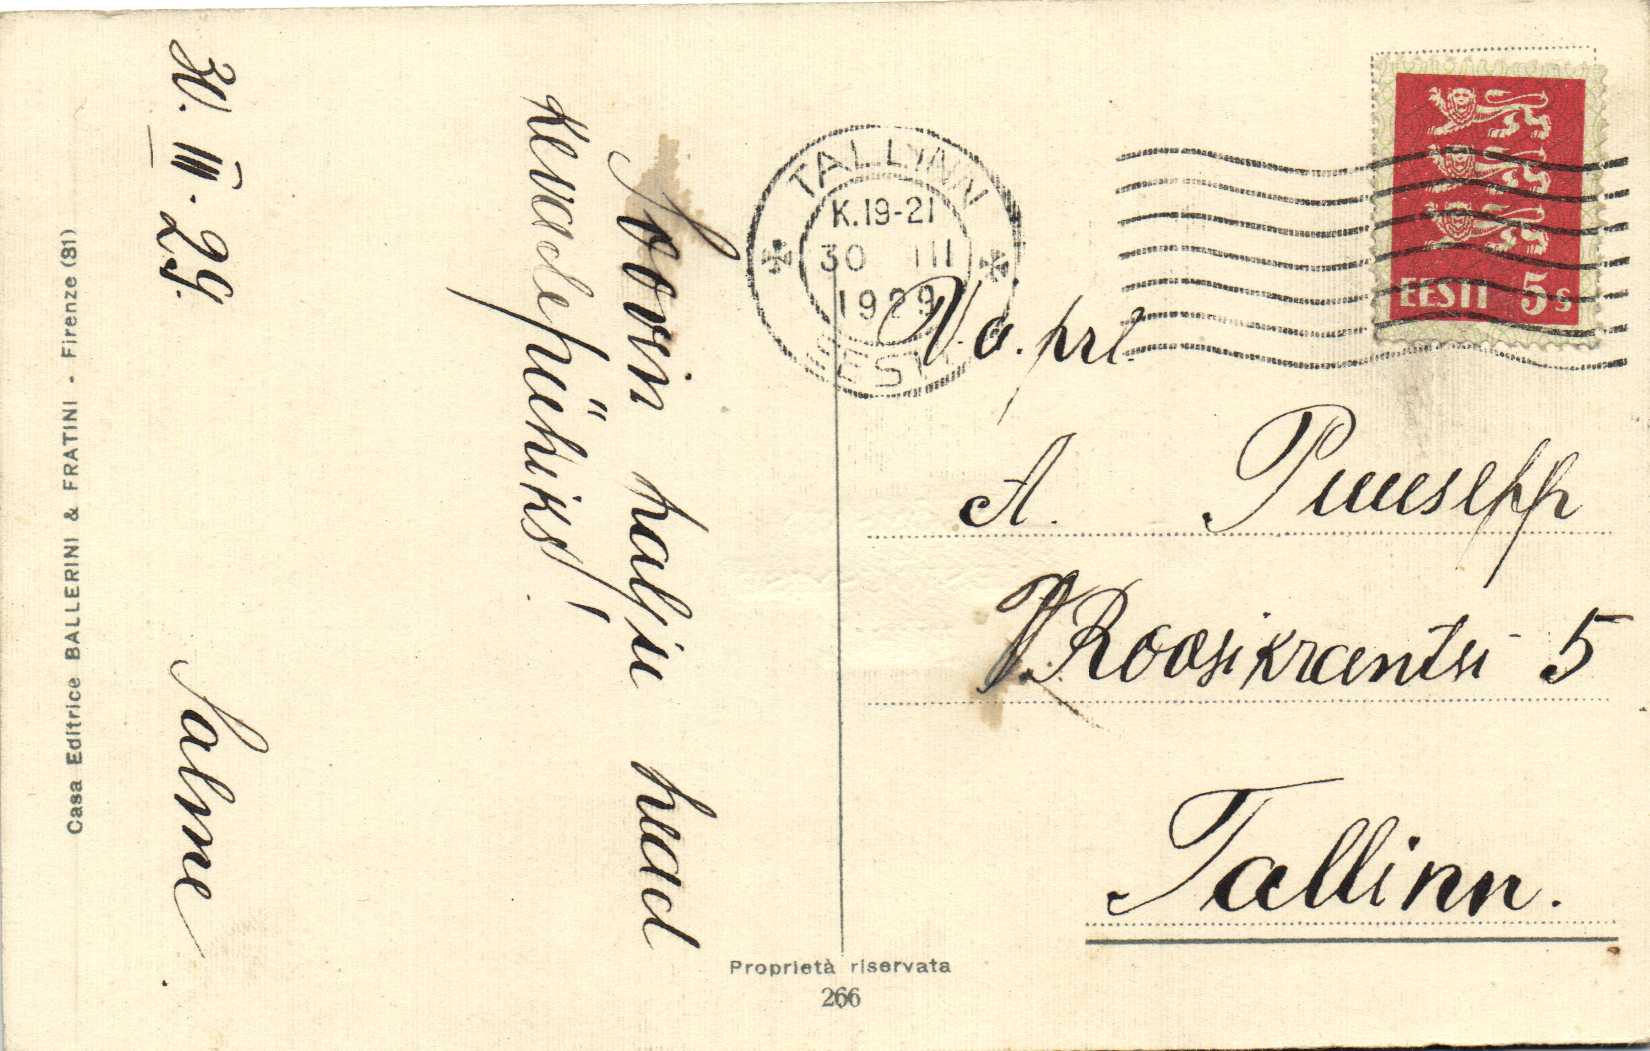 30. III. 29.
Soovin halju head
kevadepühiks!
Salme
TALLINN
K.19-21
30 III
1929
EESTI
EESTI 5 S
V. a. prl.
A. Puusepp
V. Roosikrantsi 5
Tallinn.
Casa Editrice BALLERINI & FRATINI - Firenze (81)
Proprietà riservata
266